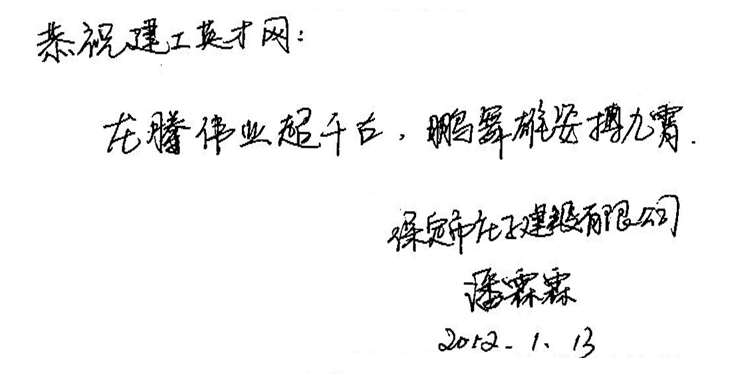 恭祝建工英才网:
龙腾伟业超千古，鹏舞雄姿搏九霄.
保定市建设有限公司
潘霖霖
2012.1.13